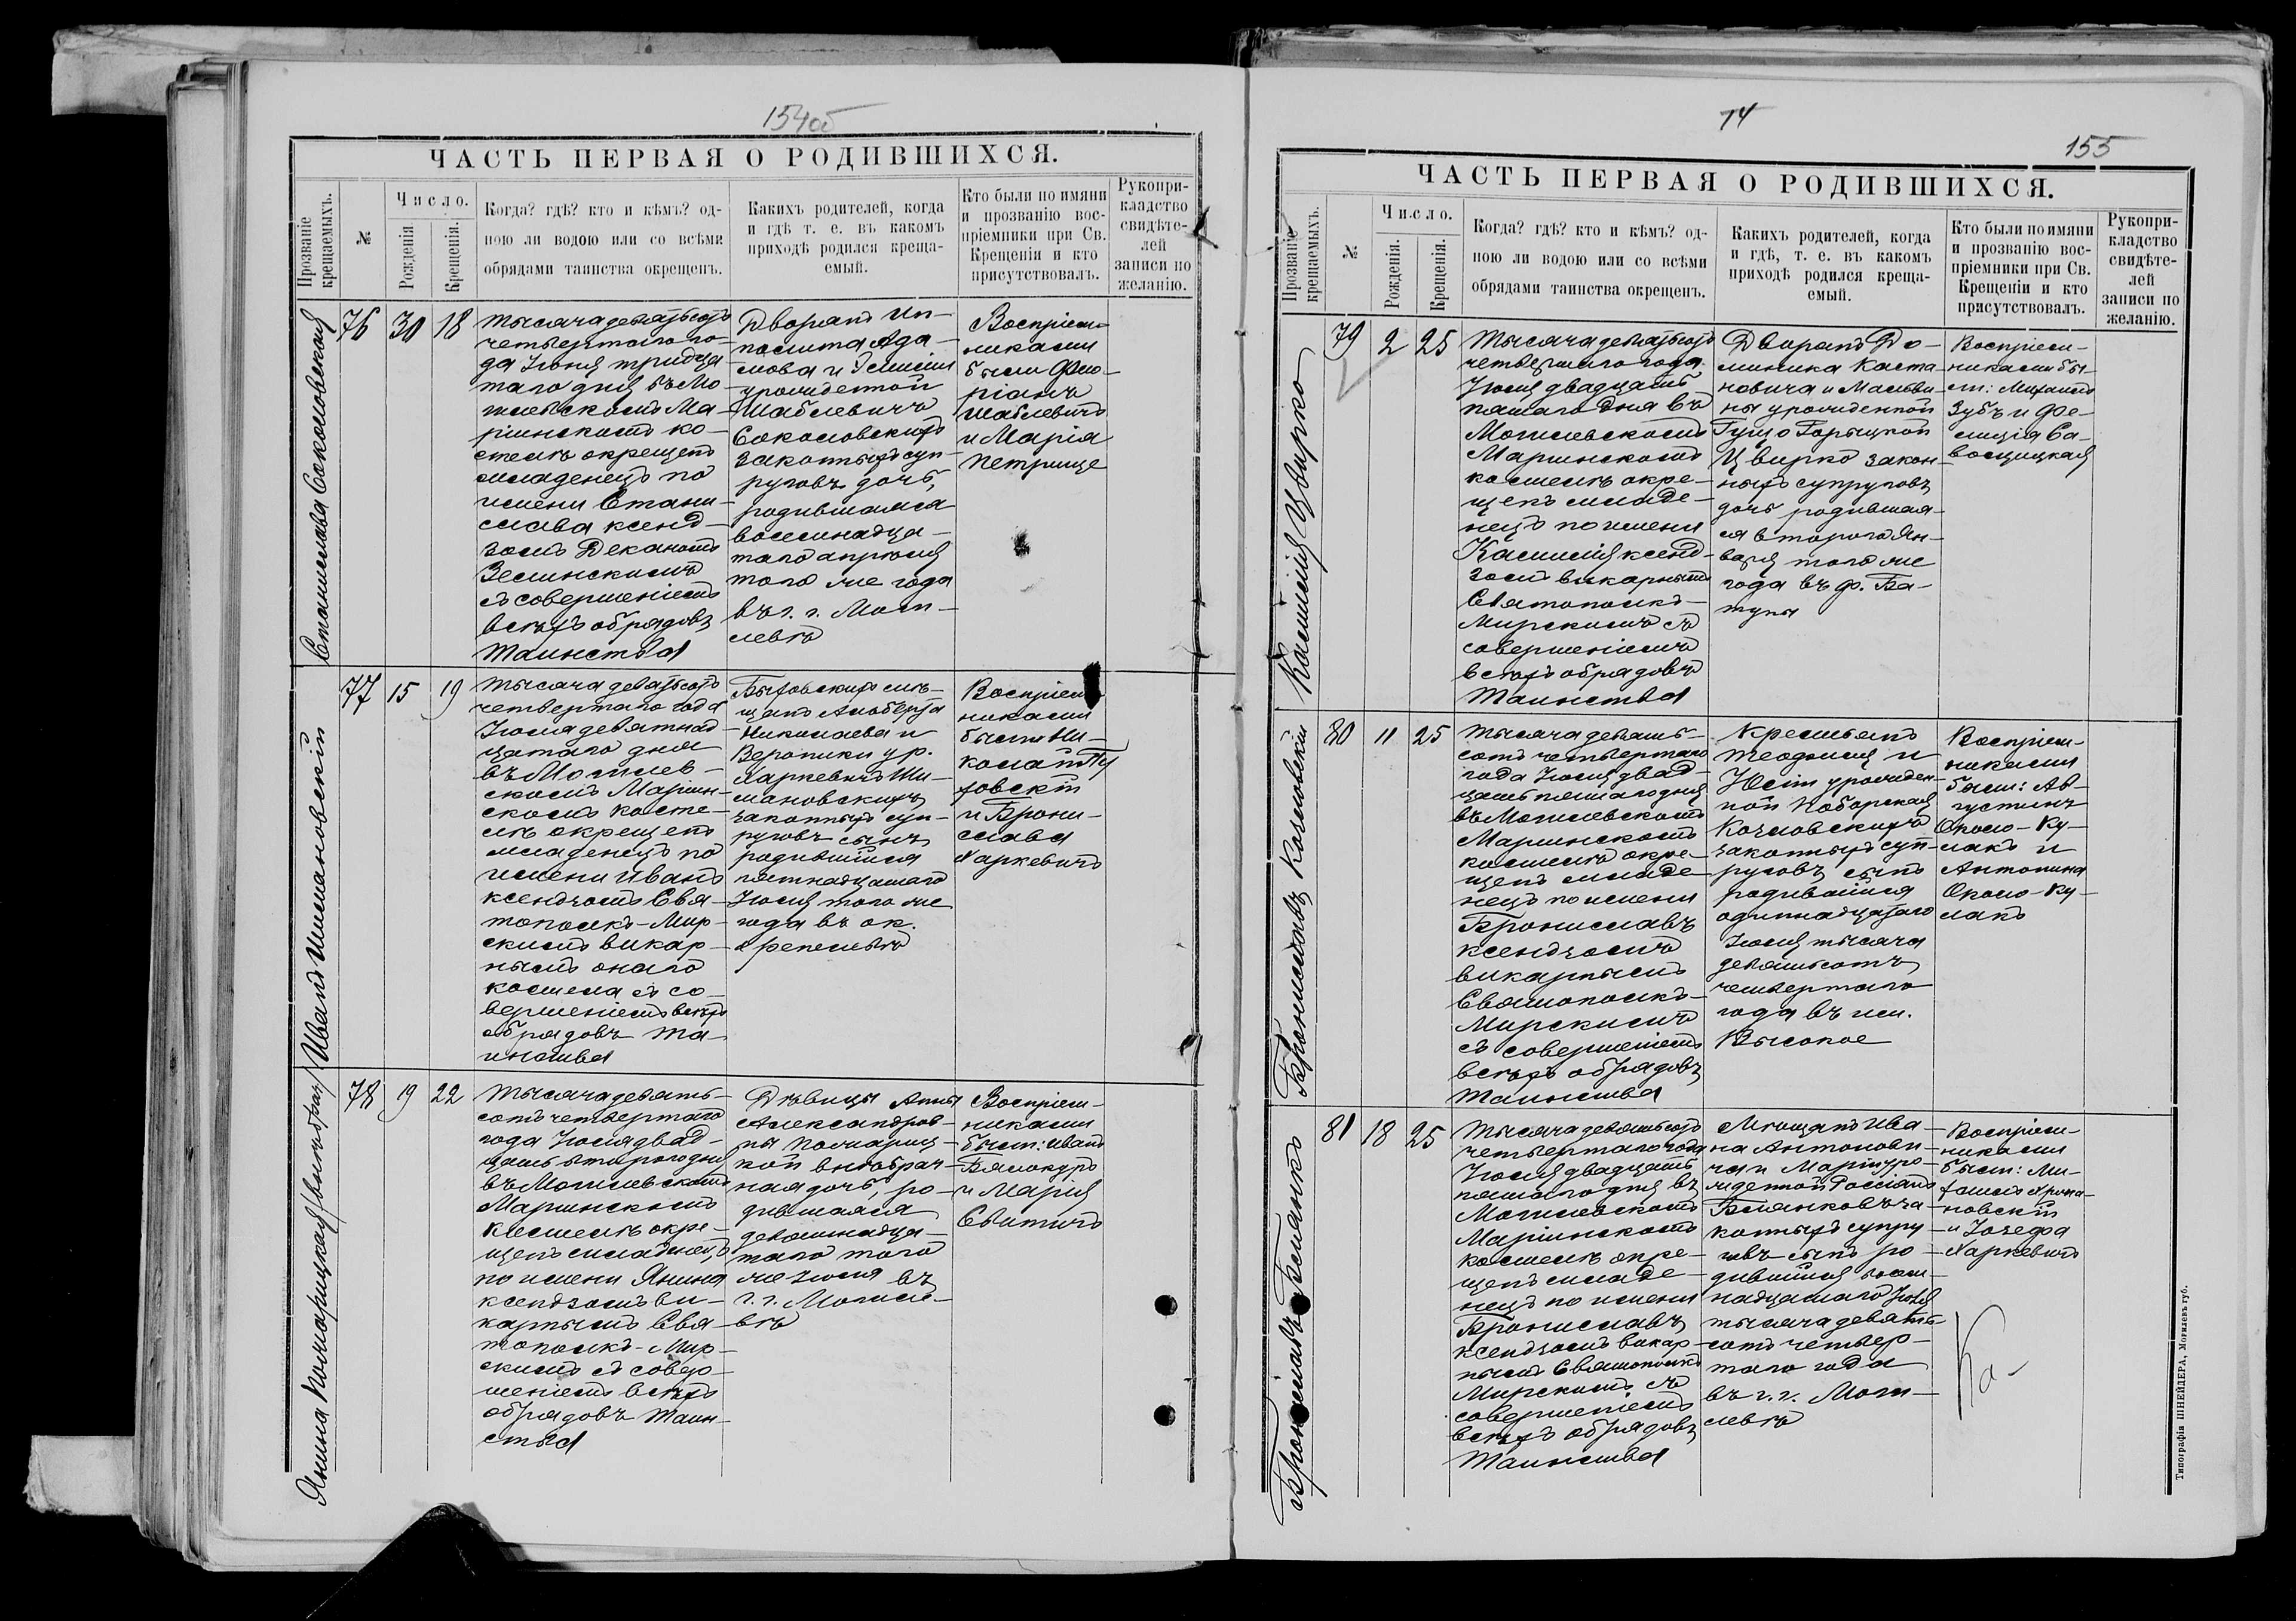 154об
ЧАСТЬ ПЕРВАЯ О РОДИВШИХСЯ.
Прозваніе крещаемыхъ.
№
Число.
Рожденія.
Крещенія.
Когда? гдѣ? кто и кѣмъ? од-
ною ли водою или со всѣми
обрядами таинства окрещенъ.
Какихъ родителей, когда
и гдѣ т. е. въ какомъ
приходѣ родился креща-
емый.
Кто были по имяни
и прозванію вос-
пріемники при Св.
Крещеніи и кто
присутствовалъ.
Рукопри-
кладство
свидѣте-
лей
записи по
желанію.
Станислава Соколовская
76
30
18
Тысяча девятьсотъ
четвертаго го-
да Іюня тридца
таго дня въ Мо
гилевскомъ Ма-
ріинскомъ ко-
стелѣ окрещенъ
младенецъ по
имени Стани-
слава ксенд-
зомъ Деканомъ
Зелинскимъ
съ совершеніемъ
всѣхъ обрядовъ
Таинства
Дворянъ Ип-
полита Ада-
мова и Эмиліи
урожденной
Шаблевичъ
Соколовскихъ
законныхъ суп-
руговъ дочь,
родившаяся
восемнадца-
таго апрѣля
того же года
въ г. г. Моги-
левѣ
Воспріем-
никами
были Фло-
ріанъ
Шаблевичъ
и Марія
Петрище
Иванъ Шимановскій
77
15
19
Тысяча девятьсотъ
четвертаго года
Іюля девятнад-
цатаго дня
въ Могилев-
скомъ Маріин-
скомъ косте-
лѣ окрещенъ
младенецъ по
имени Иванъ
ксендзомъ Свя-
тополкъ-Мир-
скимъ викар-
нымъ онаго
костела съ со-
вершеніемъ всѣхъ
обрядовъ Та-
инства
Быховскихъ мѣ-
щанъ Альберта
Николаева и
Вероники ур.
Харкевичъ Ши-
мановскихъ
законныхъ суп-
руговъ сынъ
родившійся
пятнадцатаго
Іюля того же
года въ ок.
Воспріем-
никами
были Ни-
колай
и Брони-
слава
Харкевичъ
Янина Поморицкая /внѣбрач/
78
19
22
Тысяча девять-
сотъ четвертаго
года Іюля двад-
цать второго дня
въ Могилевскомъ
Маріинскомъ
костелѣ окре-
щенъ младенецъ
по имени Янина
ксендзомъ ви-
карнымъ Свя-
тополкъ-Мир-
скимъ съ совер-
шеніемъ всѣхъ
обрядовъ Таин-
ства
Дѣвицы Анны
Александров-
ны Поморицкой
внѣбрач-
ная дочь, ро-
дившаяся
девятнадца-
таго того
же Іюля въ
г. г. Могиле-
вѣ
Воспріем-
никами
были: Иванъ
Бялокуръ
и Марія
Свитичъ
74
155
ЧАСТЬ ПЕРВАЯ О РОДИВШИХСЯ.
Прозваніе крещаемыхъ.
№
Число.
Рожденія.
Крещенія.
Когда? гдѣ? кто и кѣмъ? од-
ною ли водою или со всѣми
обрядами таинства окрещенъ.
Какихъ родителей, когда
и гдѣ, т. е. въ какомъ
приходѣ родился креща-
емый.
Кто были по имяни
и прозванію вос-
пріемники при Св.
Крещеніи и кто
присутствовалъ.
Рукопри-
кладство
свидѣте-
лей
записи по
желанію.
Касилія Цвирко
79
2
25
Тысяча девятьсотъ
четвертаго года
Іюля двадцать
пятаго дня въ
Могилевскомъ
Маріинскомъ
костелѣ окре-
щенъ младе-
нецъ по имени
Касилія ксенд-
зомъ викарнымъ
Святополкъ-
Мирскимъ съ
совершеніемъ
всѣхъ обрядовъ
Таинства
Дворянъ До-
миника Каета-
новича и Мальви-
ны урожденной
Гуцо Горыцкой
Цвирко закон-
ныхъ супруговъ
дочь родившая-
ся второго Ян-
варя того же
года въ ф. Ба-
туны
Воспріем-
никами бы-
ли: Михаилъ
Зубъ и Фе-
лиція Са-
восицкая
Брониславъ Козловскій
80
11
25
Тысяча девять-
сотъ четвертаго
года Іюля двад-
цать пятаго дня
въ Могилевскомъ
Маріинскомъ
костелѣ окре-
щенъ младе-
нецъ по имени
Брониславъ
ксендзомъ
викарнымъ
Святополкъ-
Мирскимъ
съ совершеніемъ
всѣхъ обрядовъ
Таинства
Крестьянъ
Теофила и
Юліи урожден-
ной Коборская
Козловскихъ
законныхъ суп-
руговъ сынъ
родившійся
одиннадцатаго
Іюля тысяча
девятьсотъ
четвертаго
года въ им.
Высокое
Воспріем-
никами
были: Ав-
густинъ
Около-Ку-
лакъ и
Антонина
Около-Ку-
лакъ
Брониславъ Беланко
81
18
25
Тысяча девятьсотъ
четвертаго года
Іюля двадцать
пятаго дня въ
Могилевскомъ
Маріинскомъ
костелѣ окре-
щенъ младе-
нецъ по имени
Брониславъ
ксендзомъ викар-
нымъ Святополкъ
Мирскимъ съ
совершеніемъ
всѣхъ обрядовъ
Таинства
Мѣщанъ Ива-
на Антонови-
ча и Маріи уро-
жденной
за-
конныхъ супру-
говъ сынъ ро-
дившійся восем-
надцатаго Іюля
тысяча девять-
сотъ четвер-
таго года
въ г. г. Моги-
левѣ
Воспріем-
никами
были: Ми-
хаилъ Хржа-
новскій
и Іозефа
Харкевичъ
Типографія ШНЕЙДЕРА, Могилевъ губ.